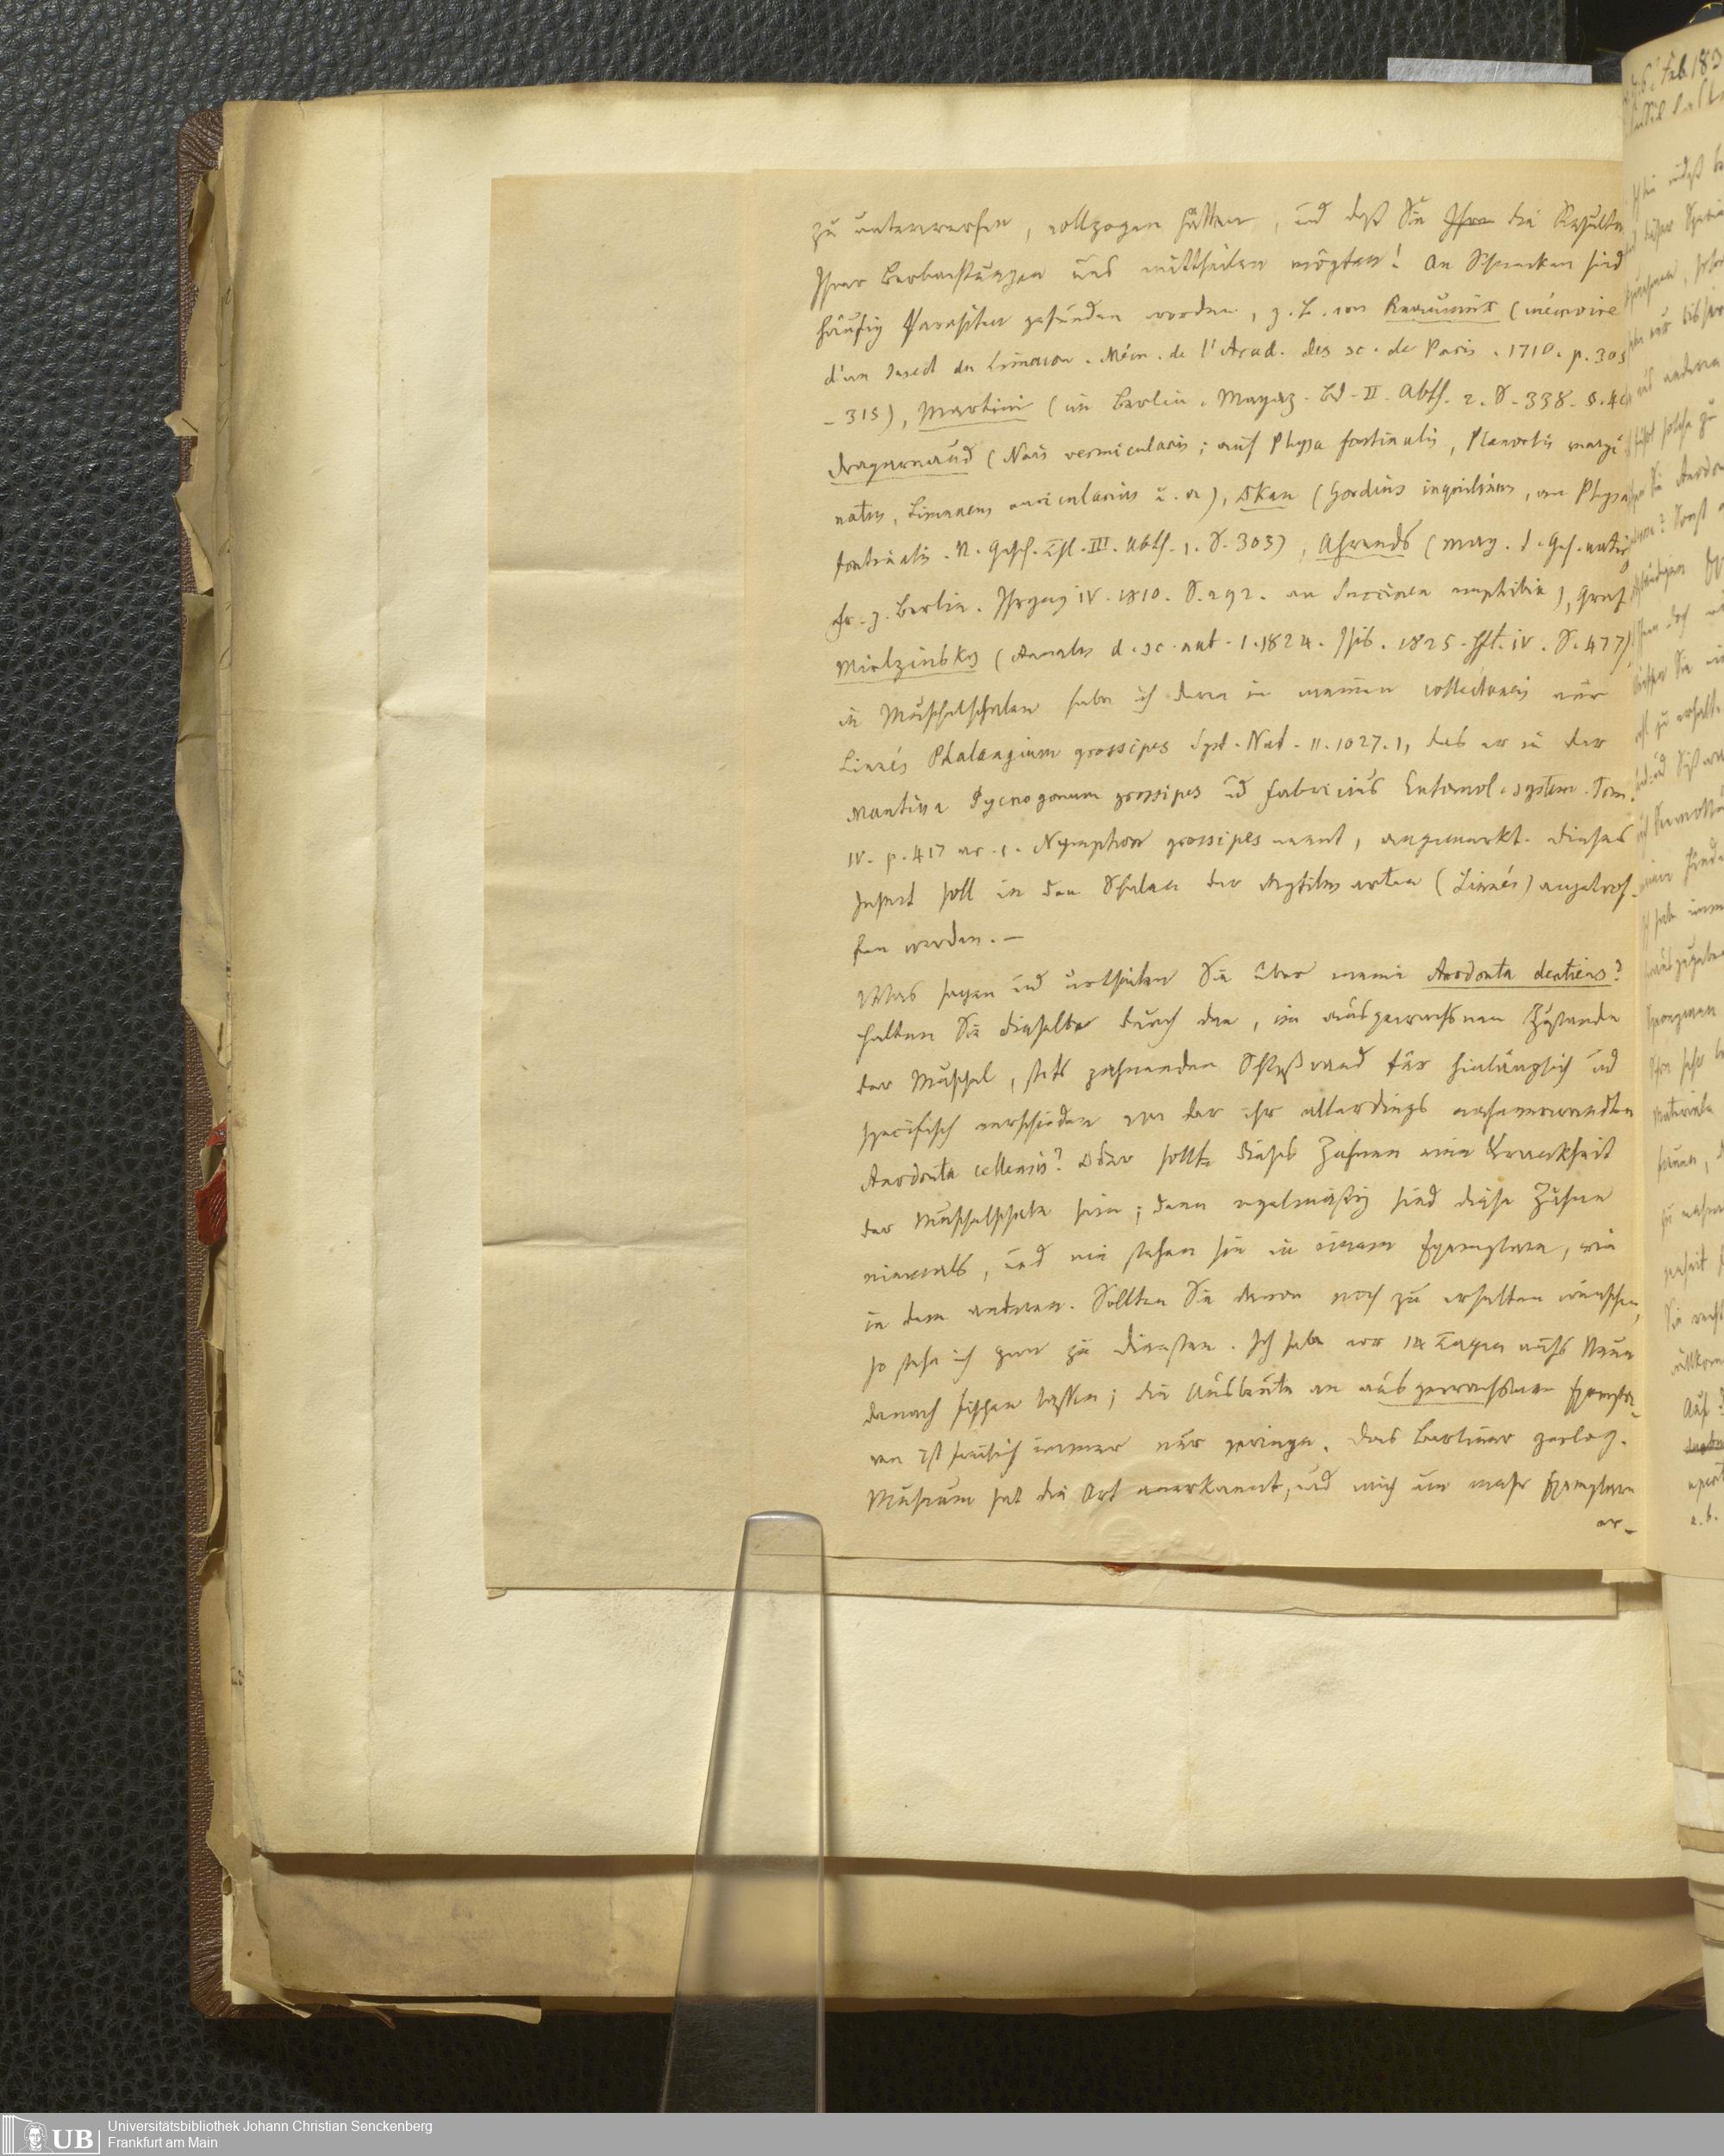 zu unterwerfen, vollzogen hätten, und daß Sie Ihre die Resulta
Ihrer Beobachtungen uns mittheilen mögten! An Schnecken sind
häufig Parasiten gefunden worden, z. B. von Reaumür (mémoire
d'un Insect du Limacon. Mém. de l'Acad. des sc. de Paris. 1710. p. 305
- 315), Martini (in Berlin. Magaz. Bd. II. Abth. 2. S. 338.
Draparnaud (Nais vermicularis; auf Physa fontinalis, Planorbis margi
natus, Limnaeus auricularius u. a), Oken (Gordius inquilinus, an Physa
fontinalis. N. Gesch. Thl. III. Abth. 1. S. 303), Ahrends (Mag. d. Ges. natf
fr. z. Berlin. Jhrgng IV. 1810. S. 292. an Succinea amphibia), Graf
Mielzinsky (Annales d. sc. nat. 1. 1824. Isis. 1825. Hft. IV. S. 477)
in Muschelschalen habe ich davon in meinen collectaneis nur
Linnés Phalangium grossipes Syst. Nat. II. 1027. 1, das er in der
Mantissa Pycnogonum grossipes ud Fabricius Entomol. system. Tom.
IV. p. 417 nr. 1. Nymphon grossipes nennt, angemerkt. Dieses
Insect soll in den Schalen der Mytilus arten (Linnés) angetrof-
fen werden. —
Was sagen und urtheilen Sie über meine Anodonta dentiens?
Halten Sie dieselbe durch den, im ausgewachsnen Zustande
der Muschel, stets zahnenden Schloßrand für hinlänglich ud
specifisch verschieden von der ihr allerdings nahverwandten
Anodonta cellensis? Oder sollte dieses Zahnen eine Krankheit
der Muschelschale sein; denn regelmäßig sind diese Zähne
niemals, und nie stehen sie in einem Exemplare, wie
in dem anderen. Sollten Sie davon noch zu erhalten wünschen,
so stehe ich gern zu Diensten. Ich habe vor 14 Tagen aufs Neue
danach fischen lassen; die Ausbeute an ausgewachsenen Exempla-
ren ist freilich immer nur geringe. Das Berliner zoolog.
Museum hat die Art anerkannt, und mich um mehr Exemplare
er-
Feb. 183
Universitätsbibliothek Johann Christian Senckenberg
Frankfurt am Main
UB